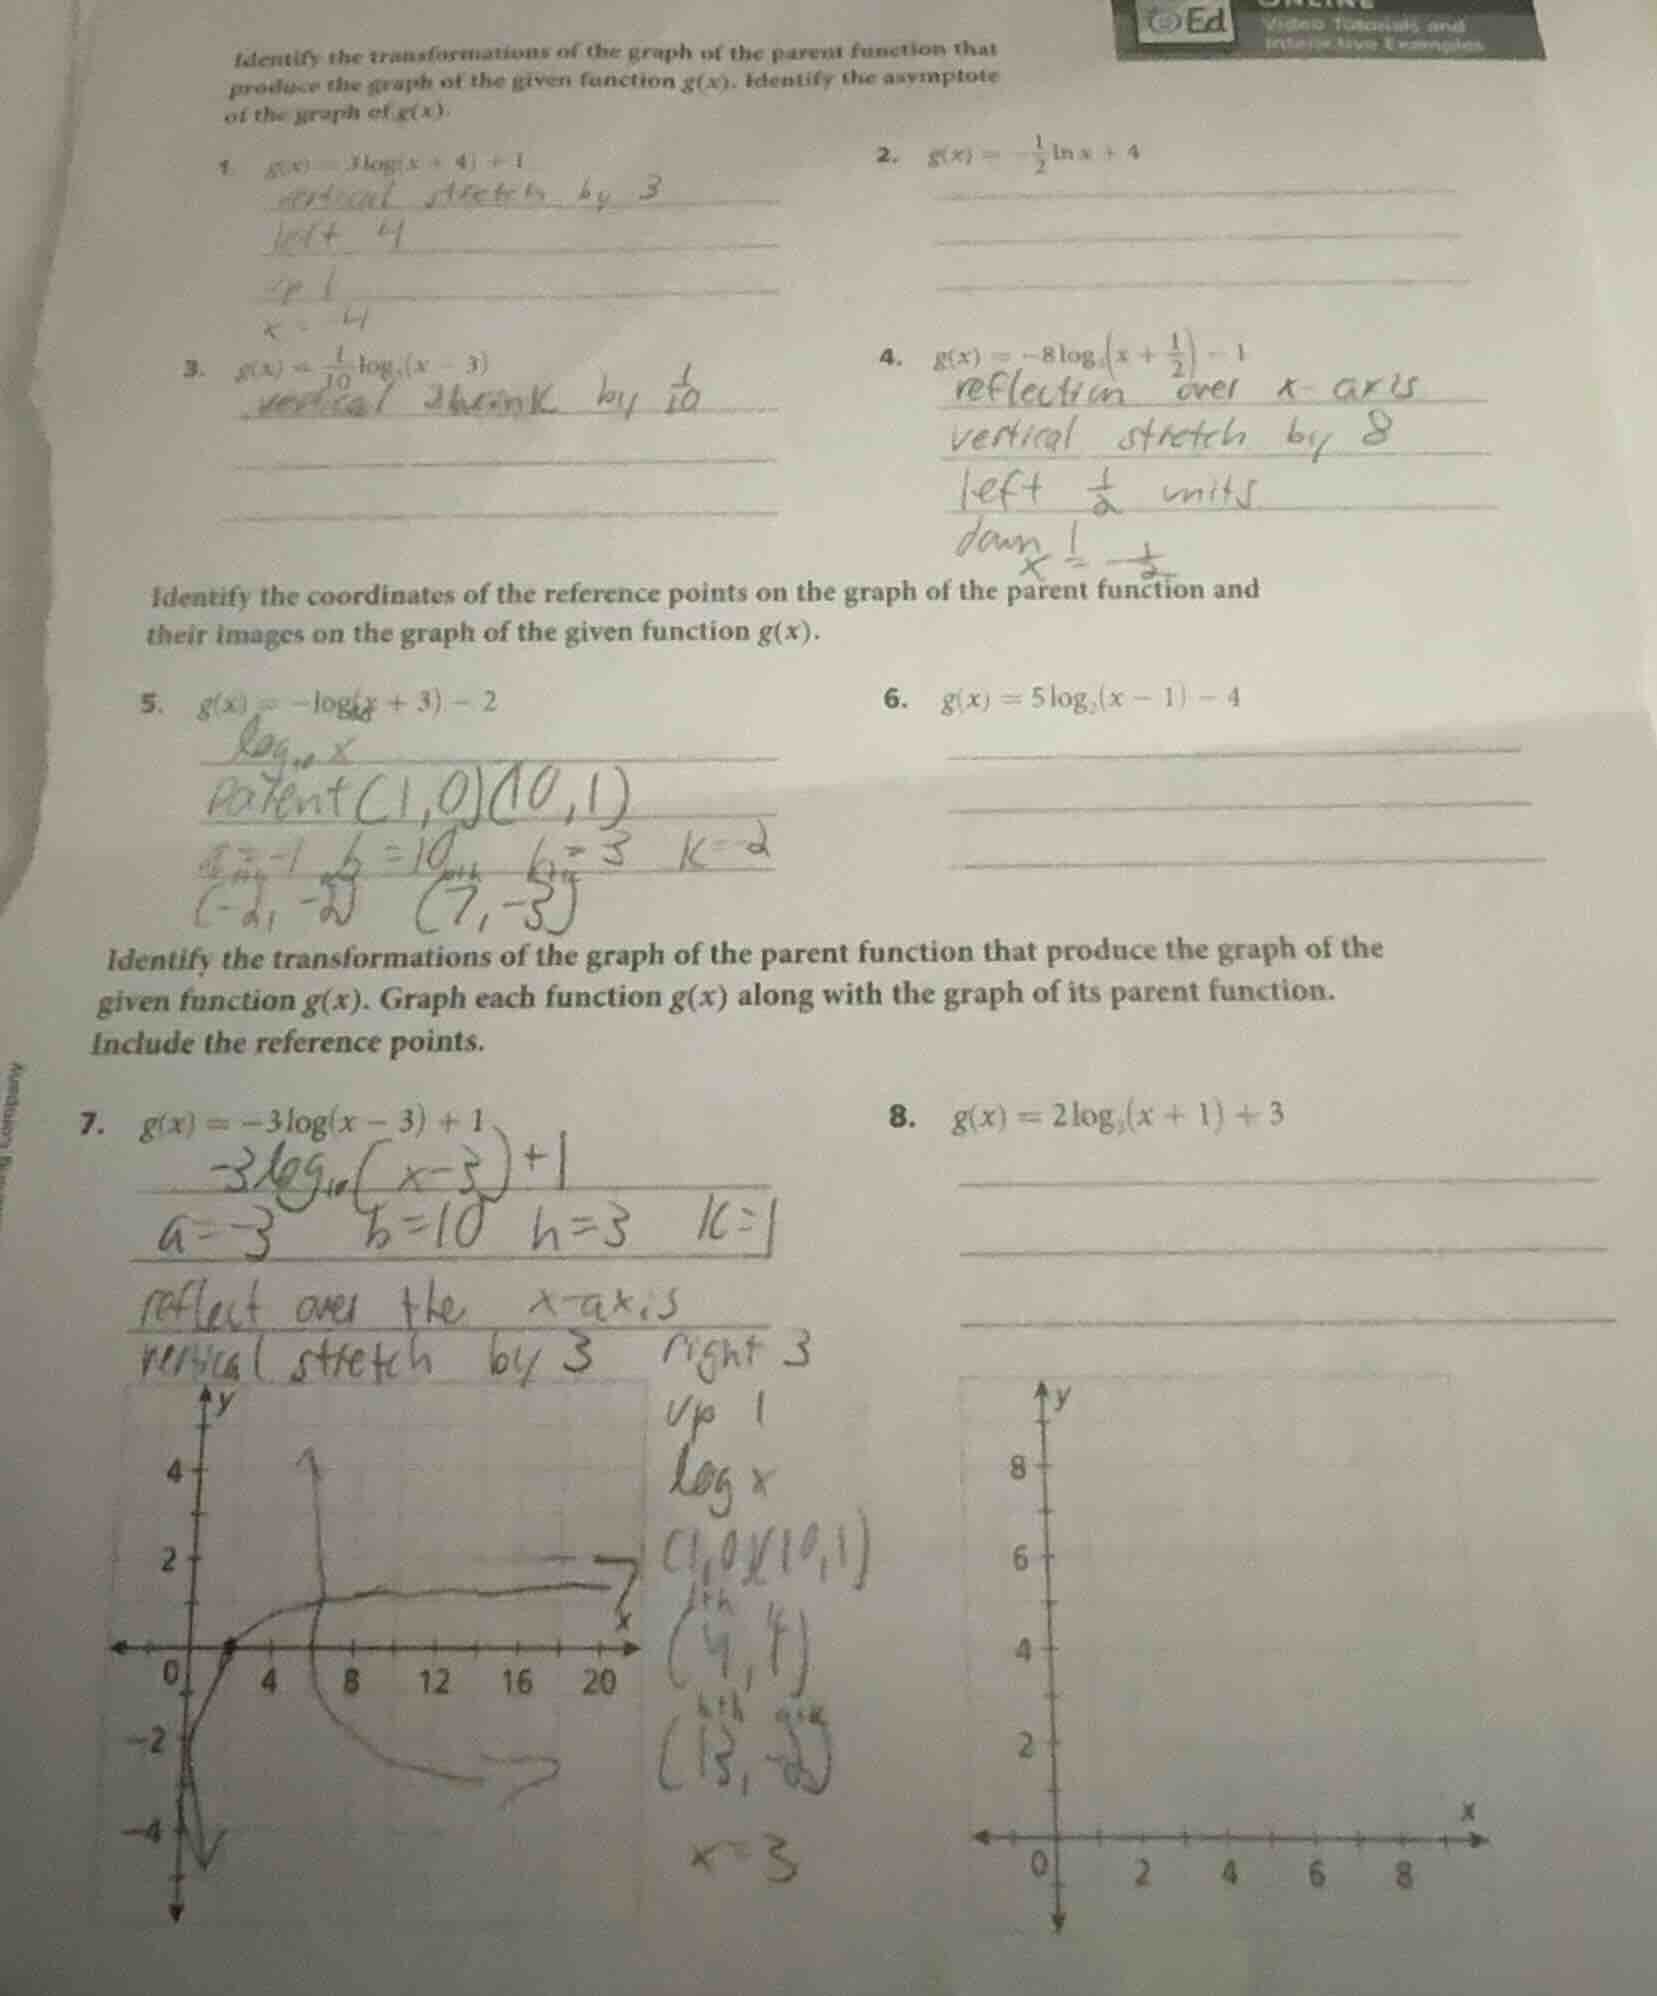 ONLINE
Ed
Video Tutorials and
Interactive Examples
Identify the transformations of the graph of the parent function that
produce the graph of the given function g(x). Identify the asymptote
of the graph of g(x).
1. g(x) = 3log(x + 4) + 1
vertical stretch by 3
left 4
up 1
x = -4
2. g(x) = -1/2 ln x + 4
3. g(x) = 1/10 log (x - 3)
vertical shrink by 1/10
4. g(x) = -8log (x + 1/2) - 1
reflection over x-axis
vertical stretch by 8
left 1/2 units
down 1
x = -1/2
Identify the coordinates of the reference points on the graph of the parent function and
their images on the graph of the given function g(x).
5. g(x) = -log(x + 3) - 2
log₁₀ x
Parent (1,0)(10,1)
a=-1 b=10 h=3 k=-2
(-2, -2) (7, -3)
6. g(x) = 5log₂(x - 1) - 4
Identify the transformations of the graph of the parent function that produce the graph of the
given function g(x). Graph each function g(x) along with the graph of its parent function.
Include the reference points.
7. g(x) = -3log(x - 3) + 1
-3log₁₀(x-3)+1
a=-3 b=10 h=3 k=1
reflect over the x-axis
vertical stretch by 3 right 3
up 1
log x
(1,0)(10,1)
1+h
(4, )
b+h a+k
(13, -2)
x=3
y
4
2
0
4 8 12 16 20
x
-2
-4
8. g(x) = 2log (x + 1) + 3
y
8
6
4
2
x
0 2 4 6 8
Company